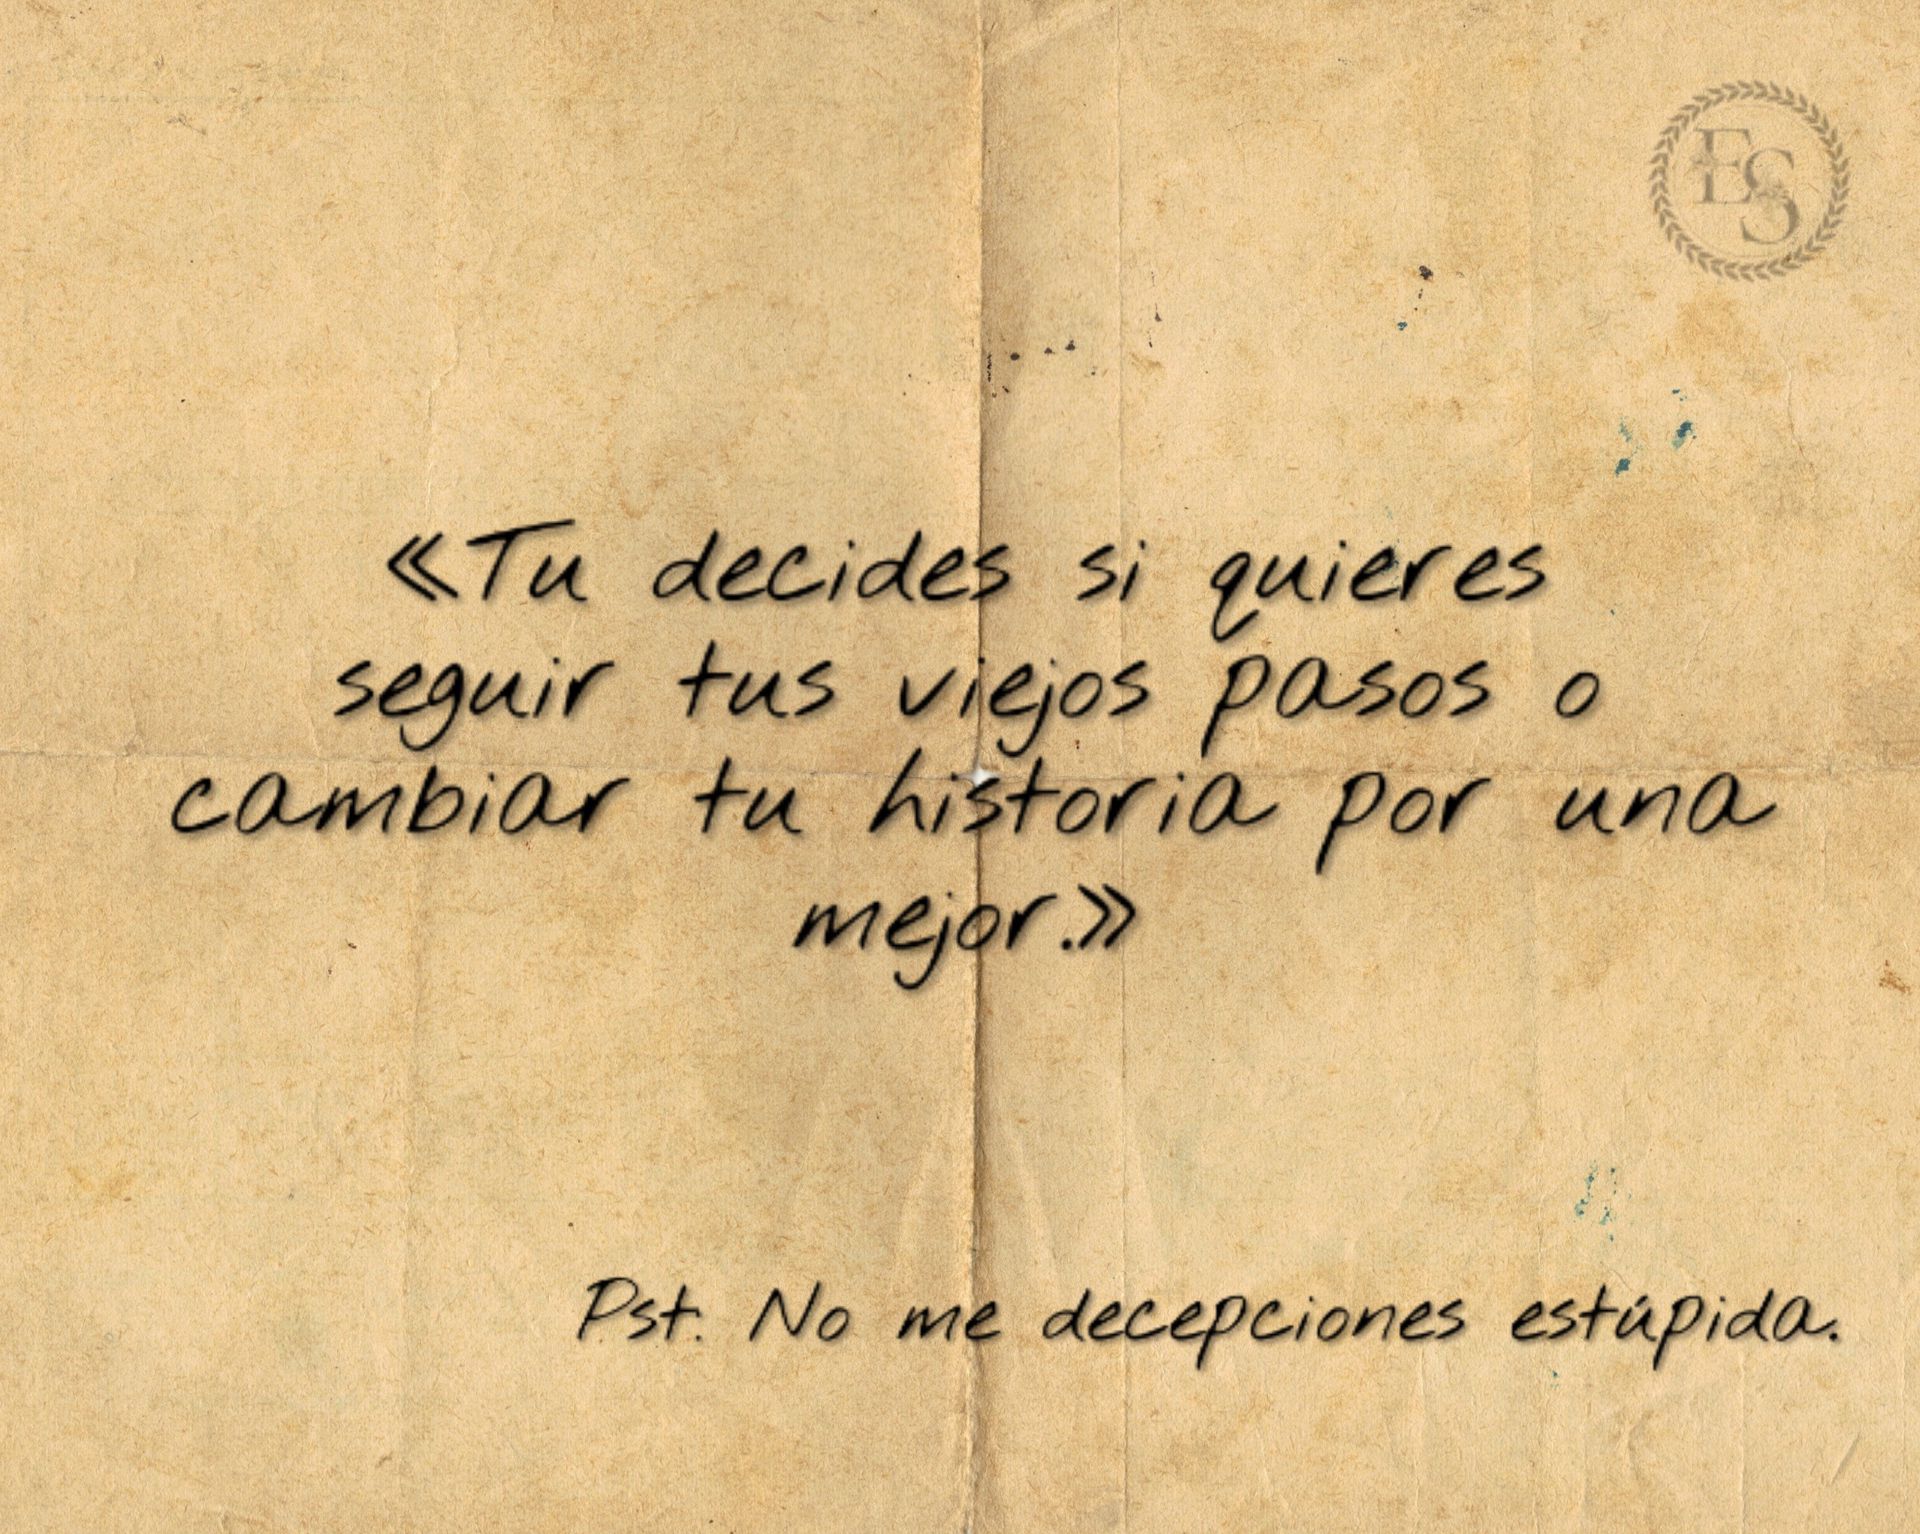 ES
«Tu decides si quieres
seguir tus viejos pasos o
cambiar tu historia por una
mejor.»
Pst. No me decepciones estúpida.